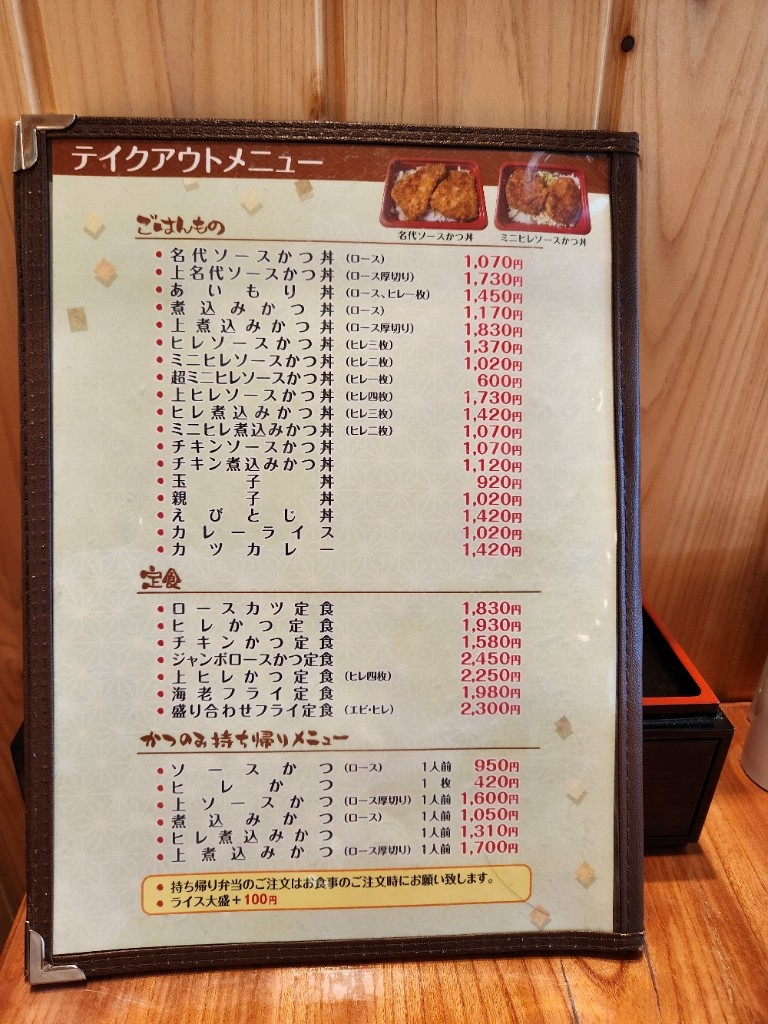 テイクアウトメニュー
名代ソースかつ丼
ミニヒレソースかつ丼
ごはんもの
• 名代ソースかつ丼 (ロース) 1,070円
• 上名代ソースかつ丼 (ロース厚切り) 1,730円
• あいもり丼 (ロース、ヒレ一枚) 1,450円
• 煮込みかつ丼 (ロース) 1,170円
• 上煮込みかつ丼 (ロース厚切り) 1,830円
• ヒレソースかつ丼 (ヒレ三枚) 1,370円
• ミニヒレソースかつ丼 (ヒレ二枚) 1,020円
• 超ミニヒレソースかつ丼 (ヒレ一枚) 600円
• 上ヒレソースかつ丼 (ヒレ四枚) 1,730円
• ヒレ煮込みかつ丼 (ヒレ三枚) 1,420円
• ミニヒレ煮込みかつ丼 (ヒレ二枚) 1,070円
• チキンソースかつ丼 1,070円
• チキン煮込みかつ丼 1,120円
• 玉子丼 920円
• 親子丼 1,020円
• えびとじ丼 1,420円
• カレーライス 1,020円
• カツカレー 1,420円
定食
• ロースカツ定食 1,830円
• ヒレかつ定食 1,930円
• チキンかつ定食 1,580円
• ジャンボロースかつ定食 2,450円
• 上ヒレかつ定食 (ヒレ四枚) 2,250円
• 海老フライ定食 1,980円
• 盛り合わせフライ定食 (エビ・ヒレ) 2,300円
かつのみ持ち帰りメニュー
• ソースかつ (ロース) 1人前 950円
• ヒレかつ 1枚 420円
• 上ソースかつ (ロース厚切り) 1人前 1,600円
• 煮込みかつ (ロース) 1人前 1,050円
• ヒレ煮込みかつ 1人前 1,310円
• 上煮込みかつ (ロース厚切り) 1人前 1,700円
• 持ち帰り弁当のご注文はお食事のご注文時にお願い致します。
• ライス大盛+100円